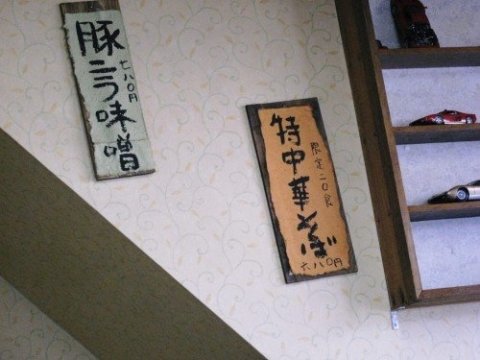 豚ニラ味噌
七八〇円
特中華そば
限定二〇食
六八〇円